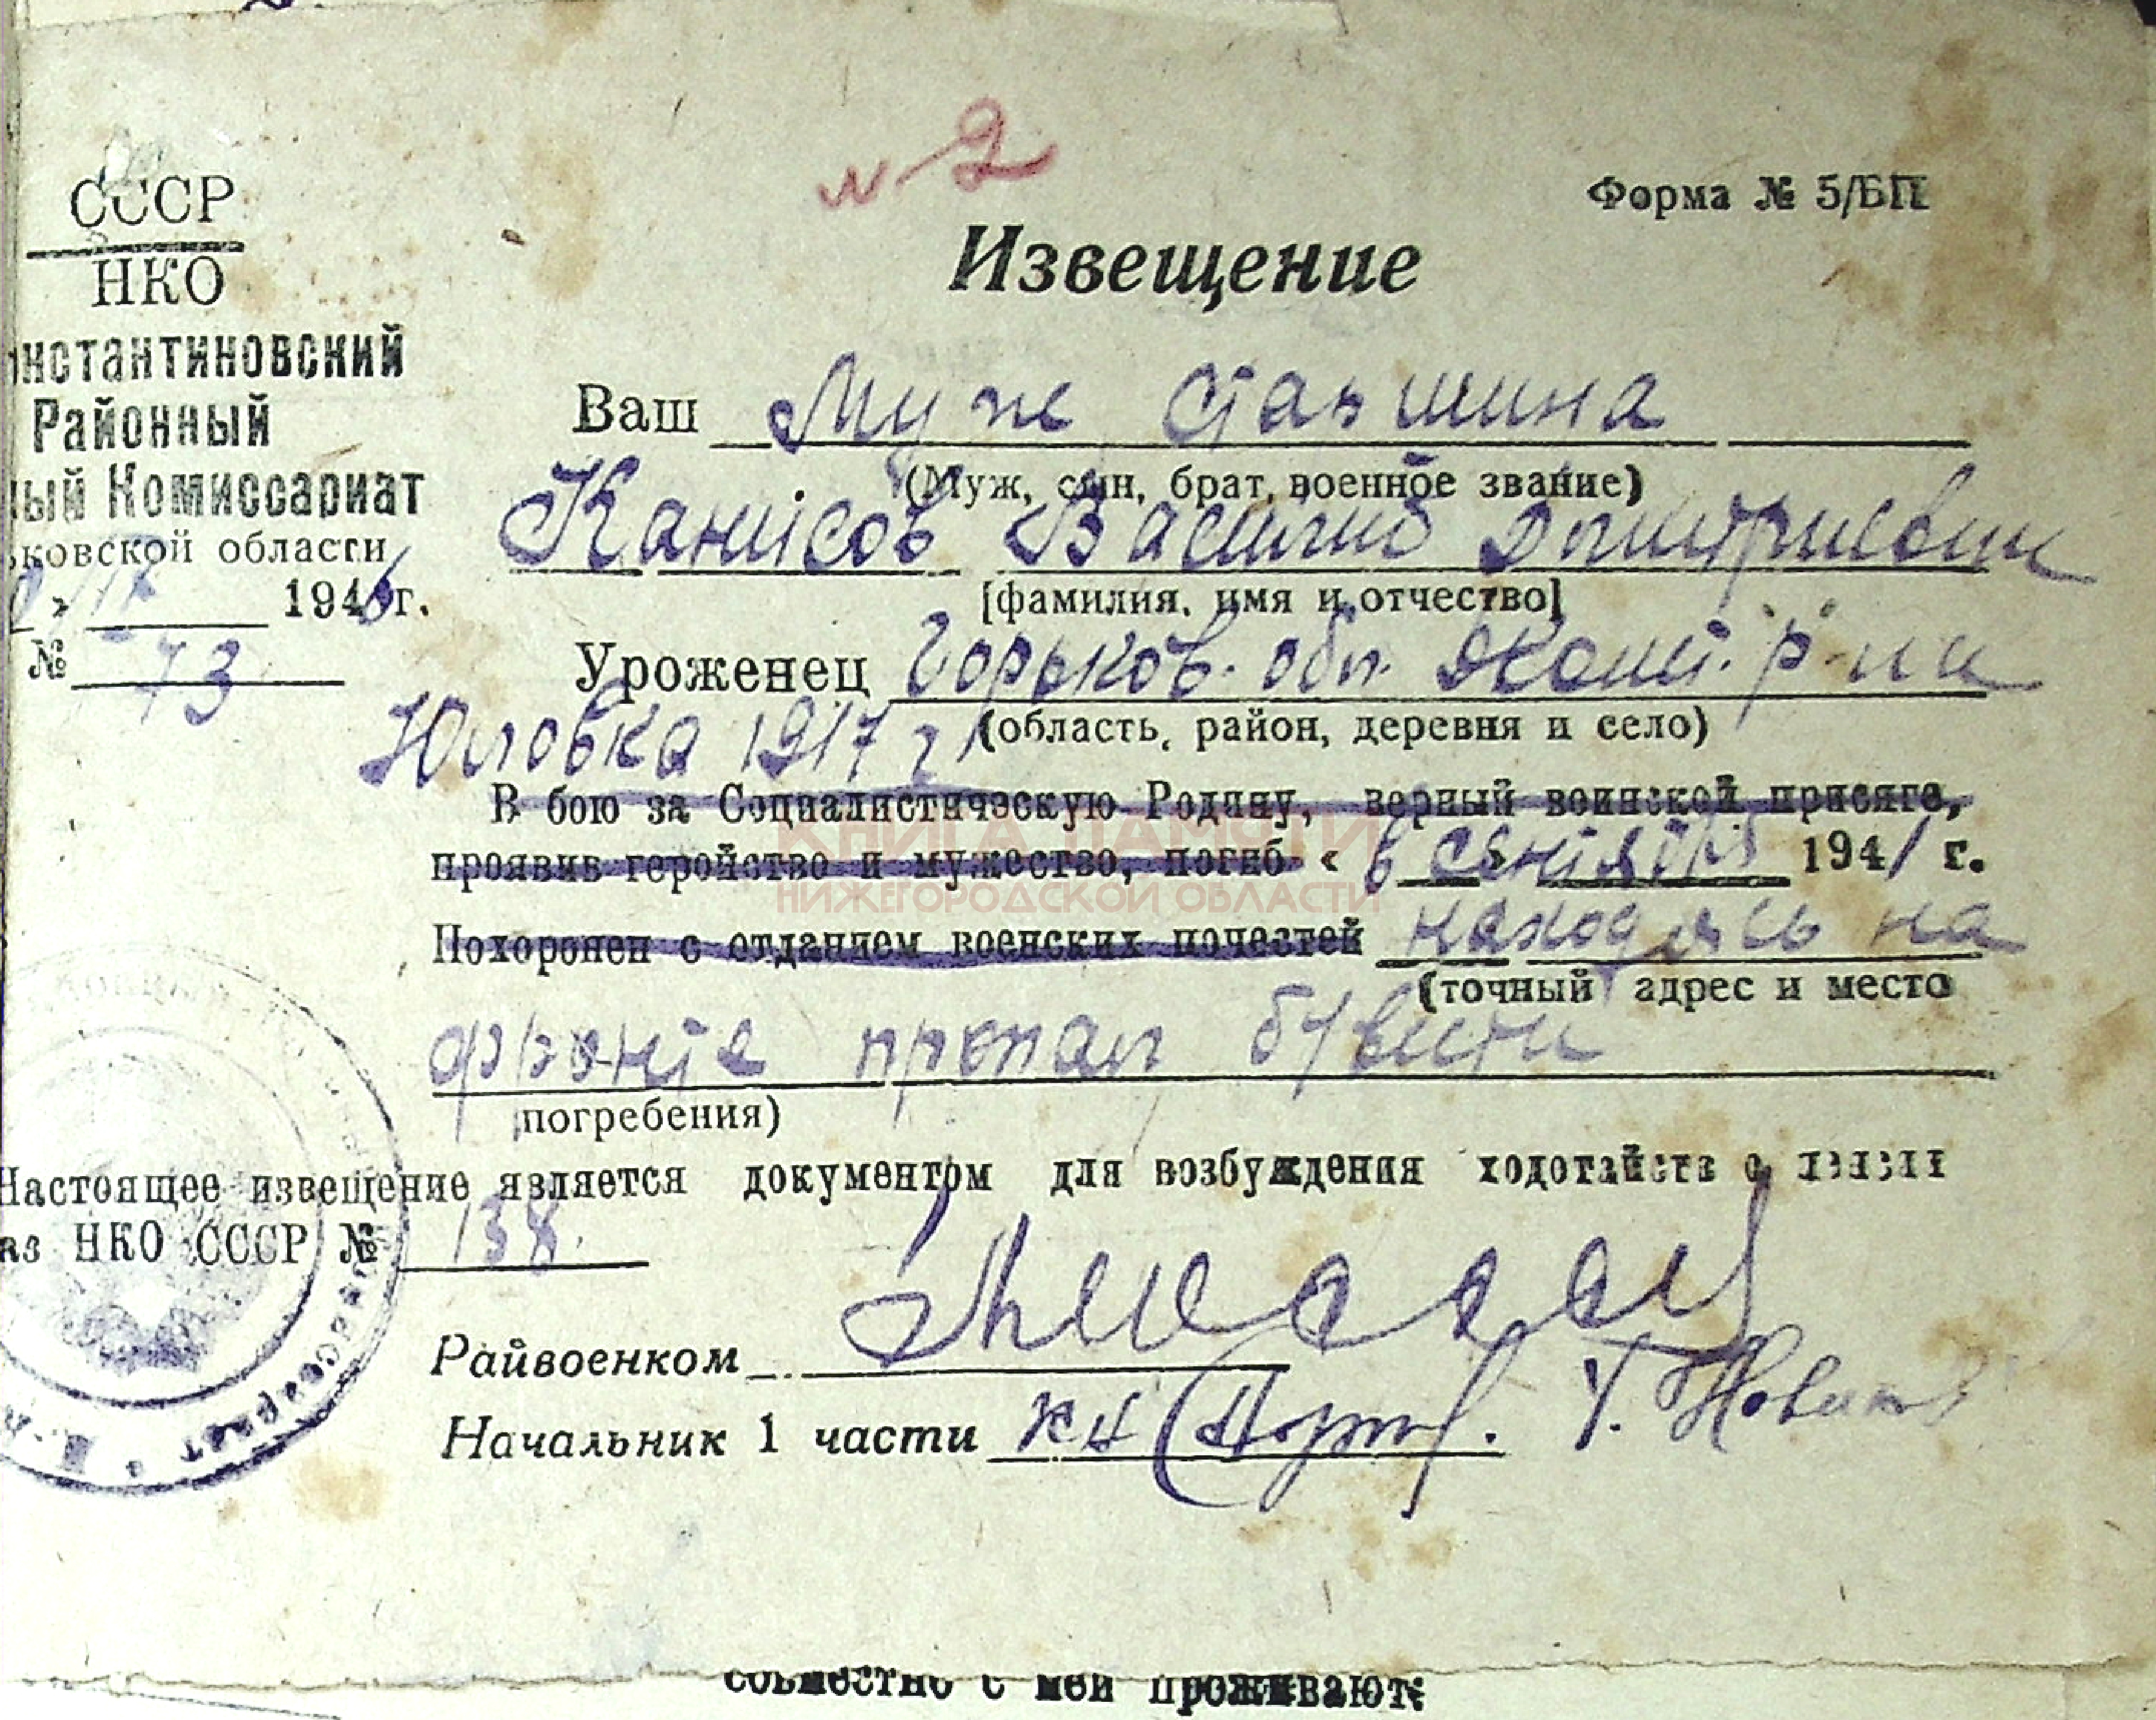 № 2
СССР
НКО
онстантиновский
Районный
ный Комиссариат
ьковской области
1946 г.
№ 73
Форма № 5/БП
Извещение
Ваш Муж старшина
(Муж, сын, брат, военное звание)
Канисов Василий Дмитриевич
[фамилия, имя и отчество]
Уроженец Горьков. обл.
(область, район, деревня и село)
Юловка 1917 г
В бою за Социалистическую Родину, верный воинской присяге,
проявив геройство и мужество, погиб « в сентябр 1941 г.
Похоронен с отданием военских почестей находясь на
(точный адрес и место
фронте пропал б/вести
погребения)
Настоящее извещение является документом для возбуждения ходотайств о пенсии
аз НКО СССР № 138
Райвоенком
Начальник 1 части
КНИГА ПАМЯТИ
НИЖЕГОРОДСКОЙ ОБЛАСТИ
совместно с мей проживают: